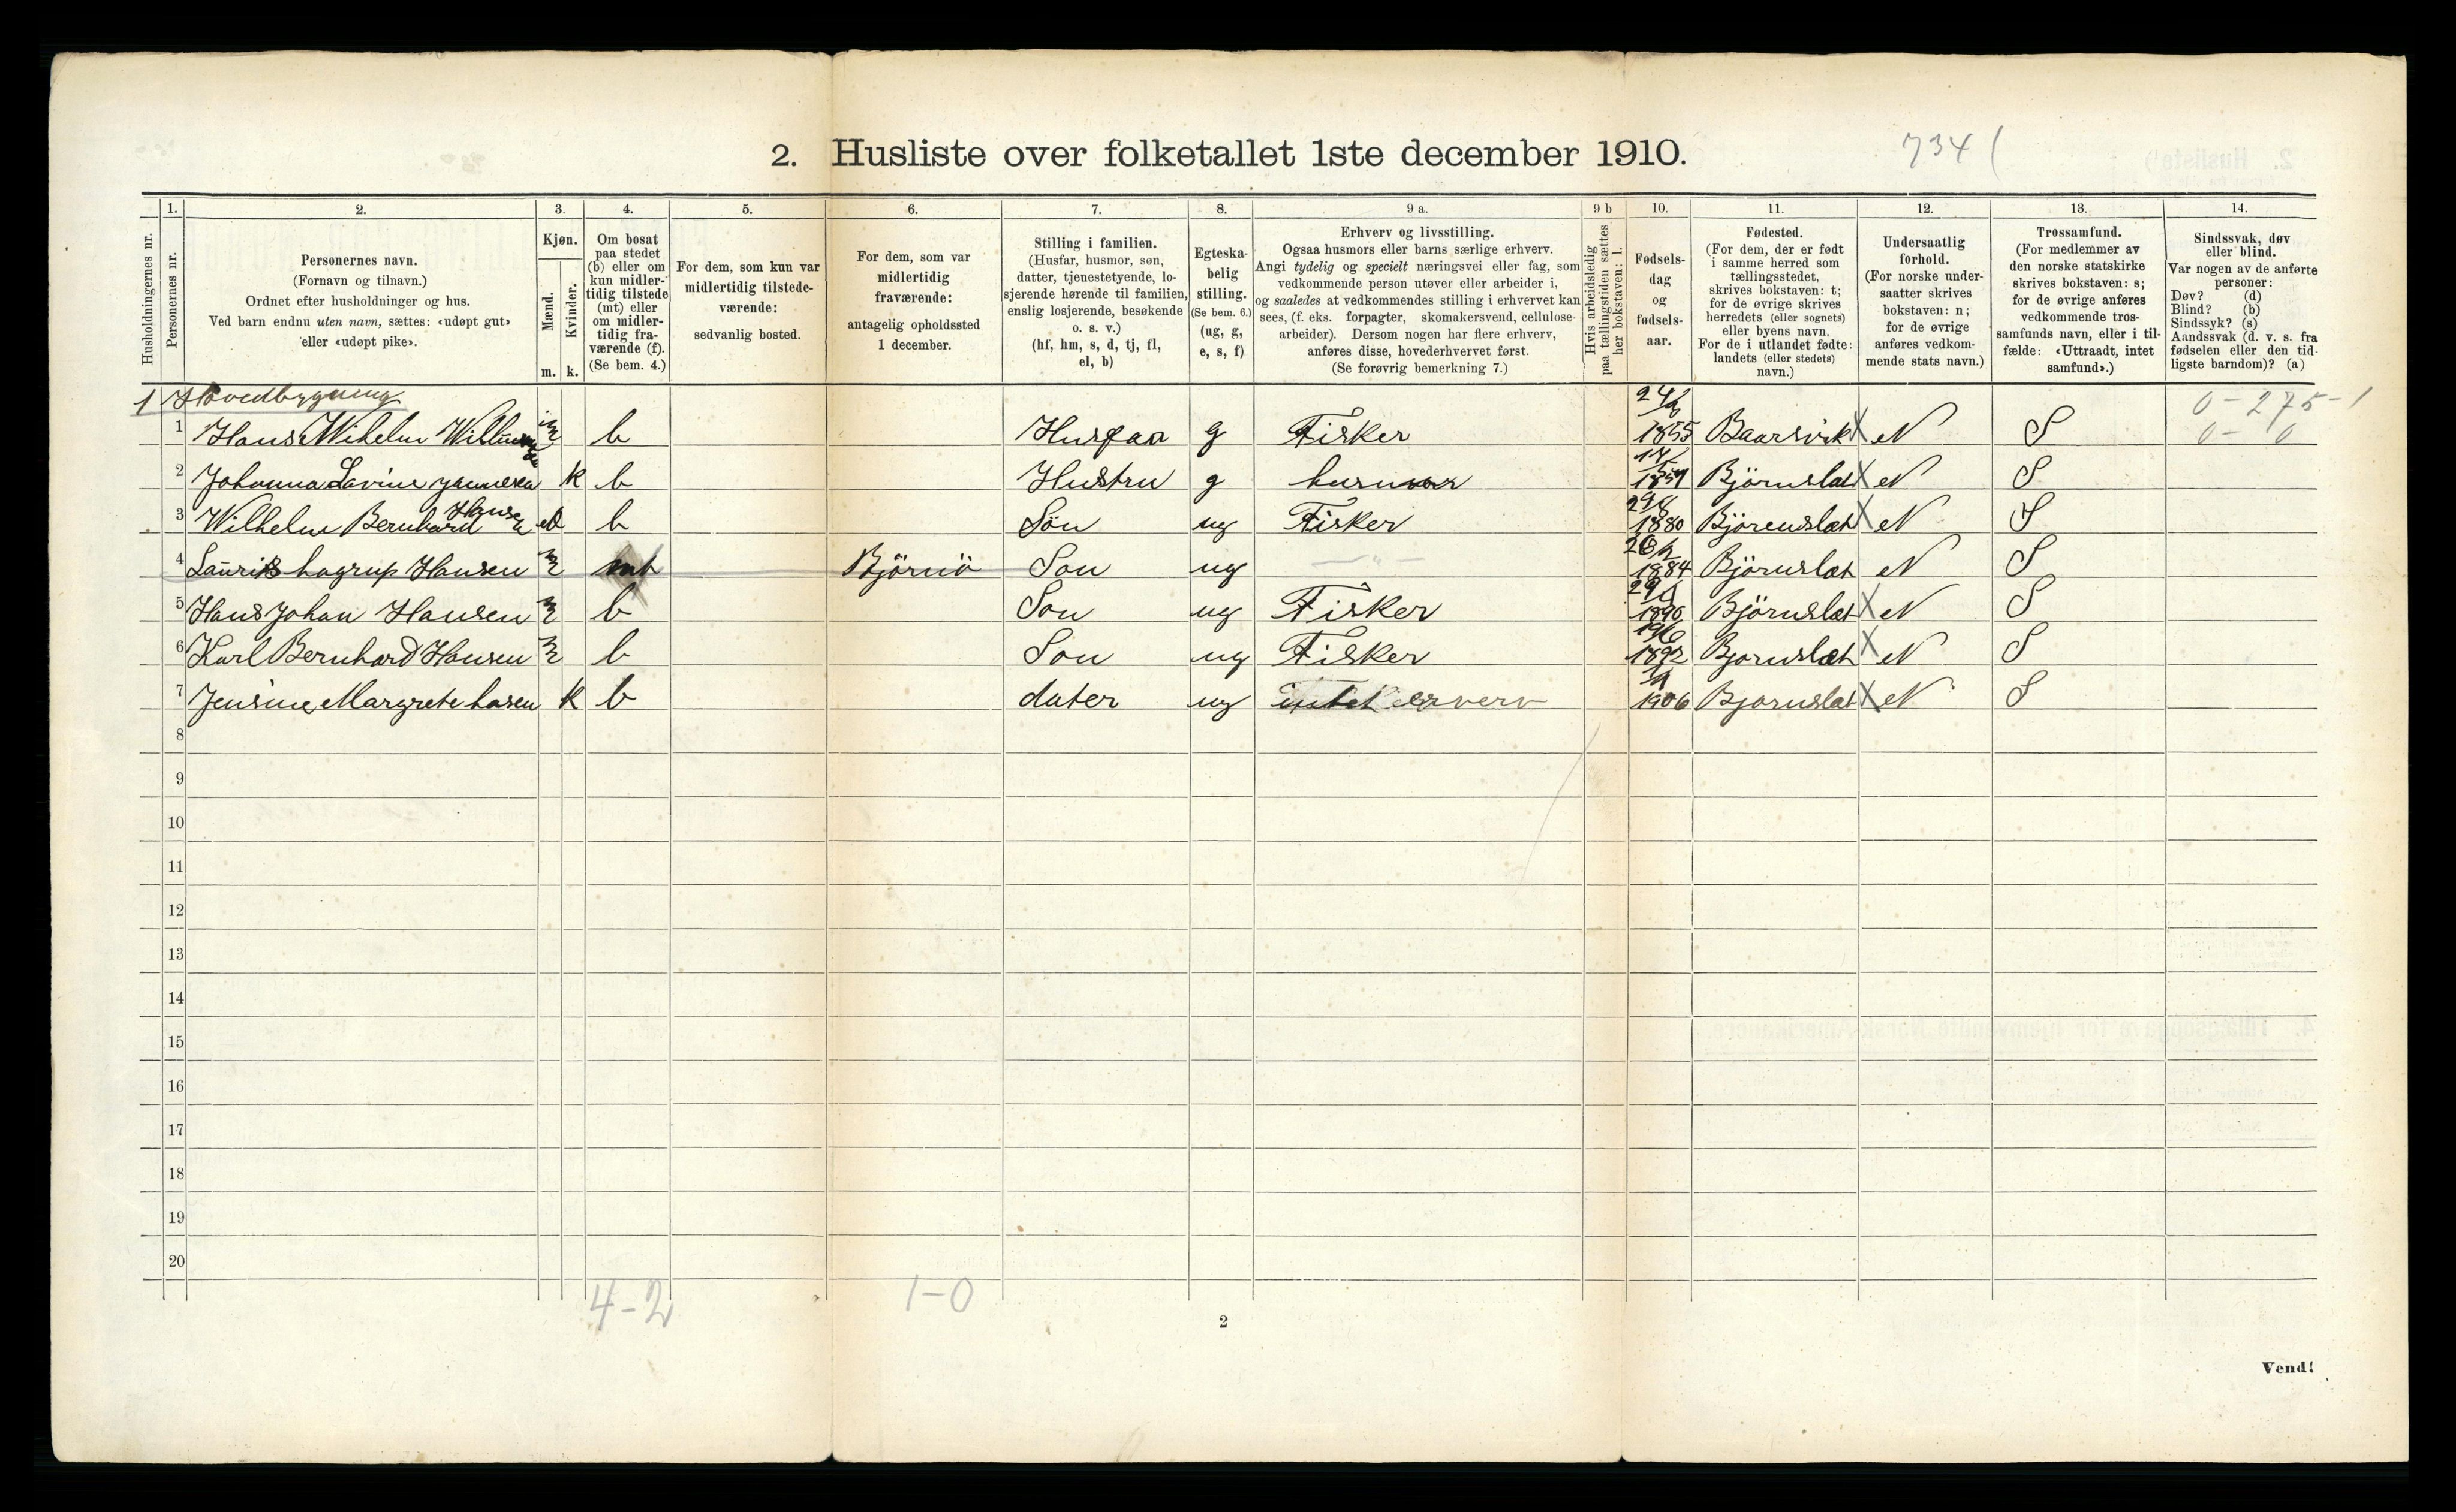 2. Husliste over folketallet 1ste december 1910.
734 (
1. 2. 3. 4. 5. 6. 7. 8. 9 a. 9 b 10. 11. 12. 13. 14.
Husholdningernes nr.
Personernes nr.
Personernes navn.
(Fornavn og tilnavn.)
Ordnet efter husholdninger og hus.
Ved barn endnu uten navn, sættes: «udøpt gut»
eller «udøpt pike».
Kjøn.
Mænd.
Kvinder.
m. k.
Om bosat
paa stedet
(b) eller om
kun midler-
tidig tilstede
(mt) eller
om midler-
tidig fra-
værende (f).
(Se bem. 4.)
For dem, som kun var
midlertidig tilstede-
værende:
sedvanlig bosted.
For dem, som var
midlertidig
fraværende:
antagelig opholdssted
1 december.
Stilling i familien.
(Husfar, husmor, søn,
datter, tjenestetyende, lo-
sjerende hørende til familien,
enslig losjerende, besøkende
o. s. v.)
(hf, hm, s, d, tj, fl,
el, b)
Egteska-
belig
stilling.
(Se bem. 6.)
(ug, g,
e, s, f)
Erhverv og livsstilling.
Ogsaa husmors eller barns særlige erhverv.
Angi tydelig og specielt næringsvei eller fag, som
vedkommende person utøver eller arbeider i,
og saaledes at vedkommendes stilling i erhvervet kan
sees, (f. eks. forpagter, skomakersvend, cellulose-
arbeider). Dersom nogen har flere erhverv,
anføres disse, hovederhvervet først.
(Se forøvrig bemerkning 7.)
Hvis arbeidsledig
paa tællingstiden sættes
her bokstaven: l.
Fødsels-
dag
og
fødsels-
aar.
Fødested.
(For dem, der er født
i samme herred som
tællingsstedet,
skrives bokstaven: t;
for de øvrige skrives
herredets (eller sognets)
eller byens navn.
For de i utlandet fødte:
landets (eller stedets)
navn.)
Undersaatlig
forhold.
(For norske under-
saatter skrives
bokstaven: n;
for de øvrige
anføres vedkom-
mende stats navn.)
Trossamfund.
(For medlemmer av
den norske statskirke
skrives bokstaven: s;
for de øvrige anføres
vedkommende tros-
samfunds navn, eller i til-
fælde: «Uttraadt, intet
samfund».)
Sindssvak, døv
eller blind.
Var nogen av de anførte
personer:
Døv? (d)
Blind? (b)
Sindssyk? (s)
Aandssvak (d. v. s. fra
fødselen eller den tid-
ligste barndom)? (a)
1 Hovedbygning 0-275-1
1 Hans Wihelm m b Husfaa g Fisker 1855 Baarsvik X N S 0-0
2 Johanna Lavine k b Hustru g X N S
3 Wilhelm Bernhard Hansen b Sön ug Fisker 1880 Björenslæt X N S
4 Laurits hagrup Hansen m Björnö Son ug — " — 1884 Björnslæt N S
5 Hans Johan Hansen m b Son ug Fisker 1890 Björnslæt X N S
6 Karl Bernhard Hansen m b Son ug Fisker 1892 Bjornslæt X N S
7 Jensine Margrete hasen k b dater ug intet erverv 1906 Bjornslæt X N S
8
9
10
11
12
13
14
15
16
17
18
19
20
4-2 1-0
2
Vend!